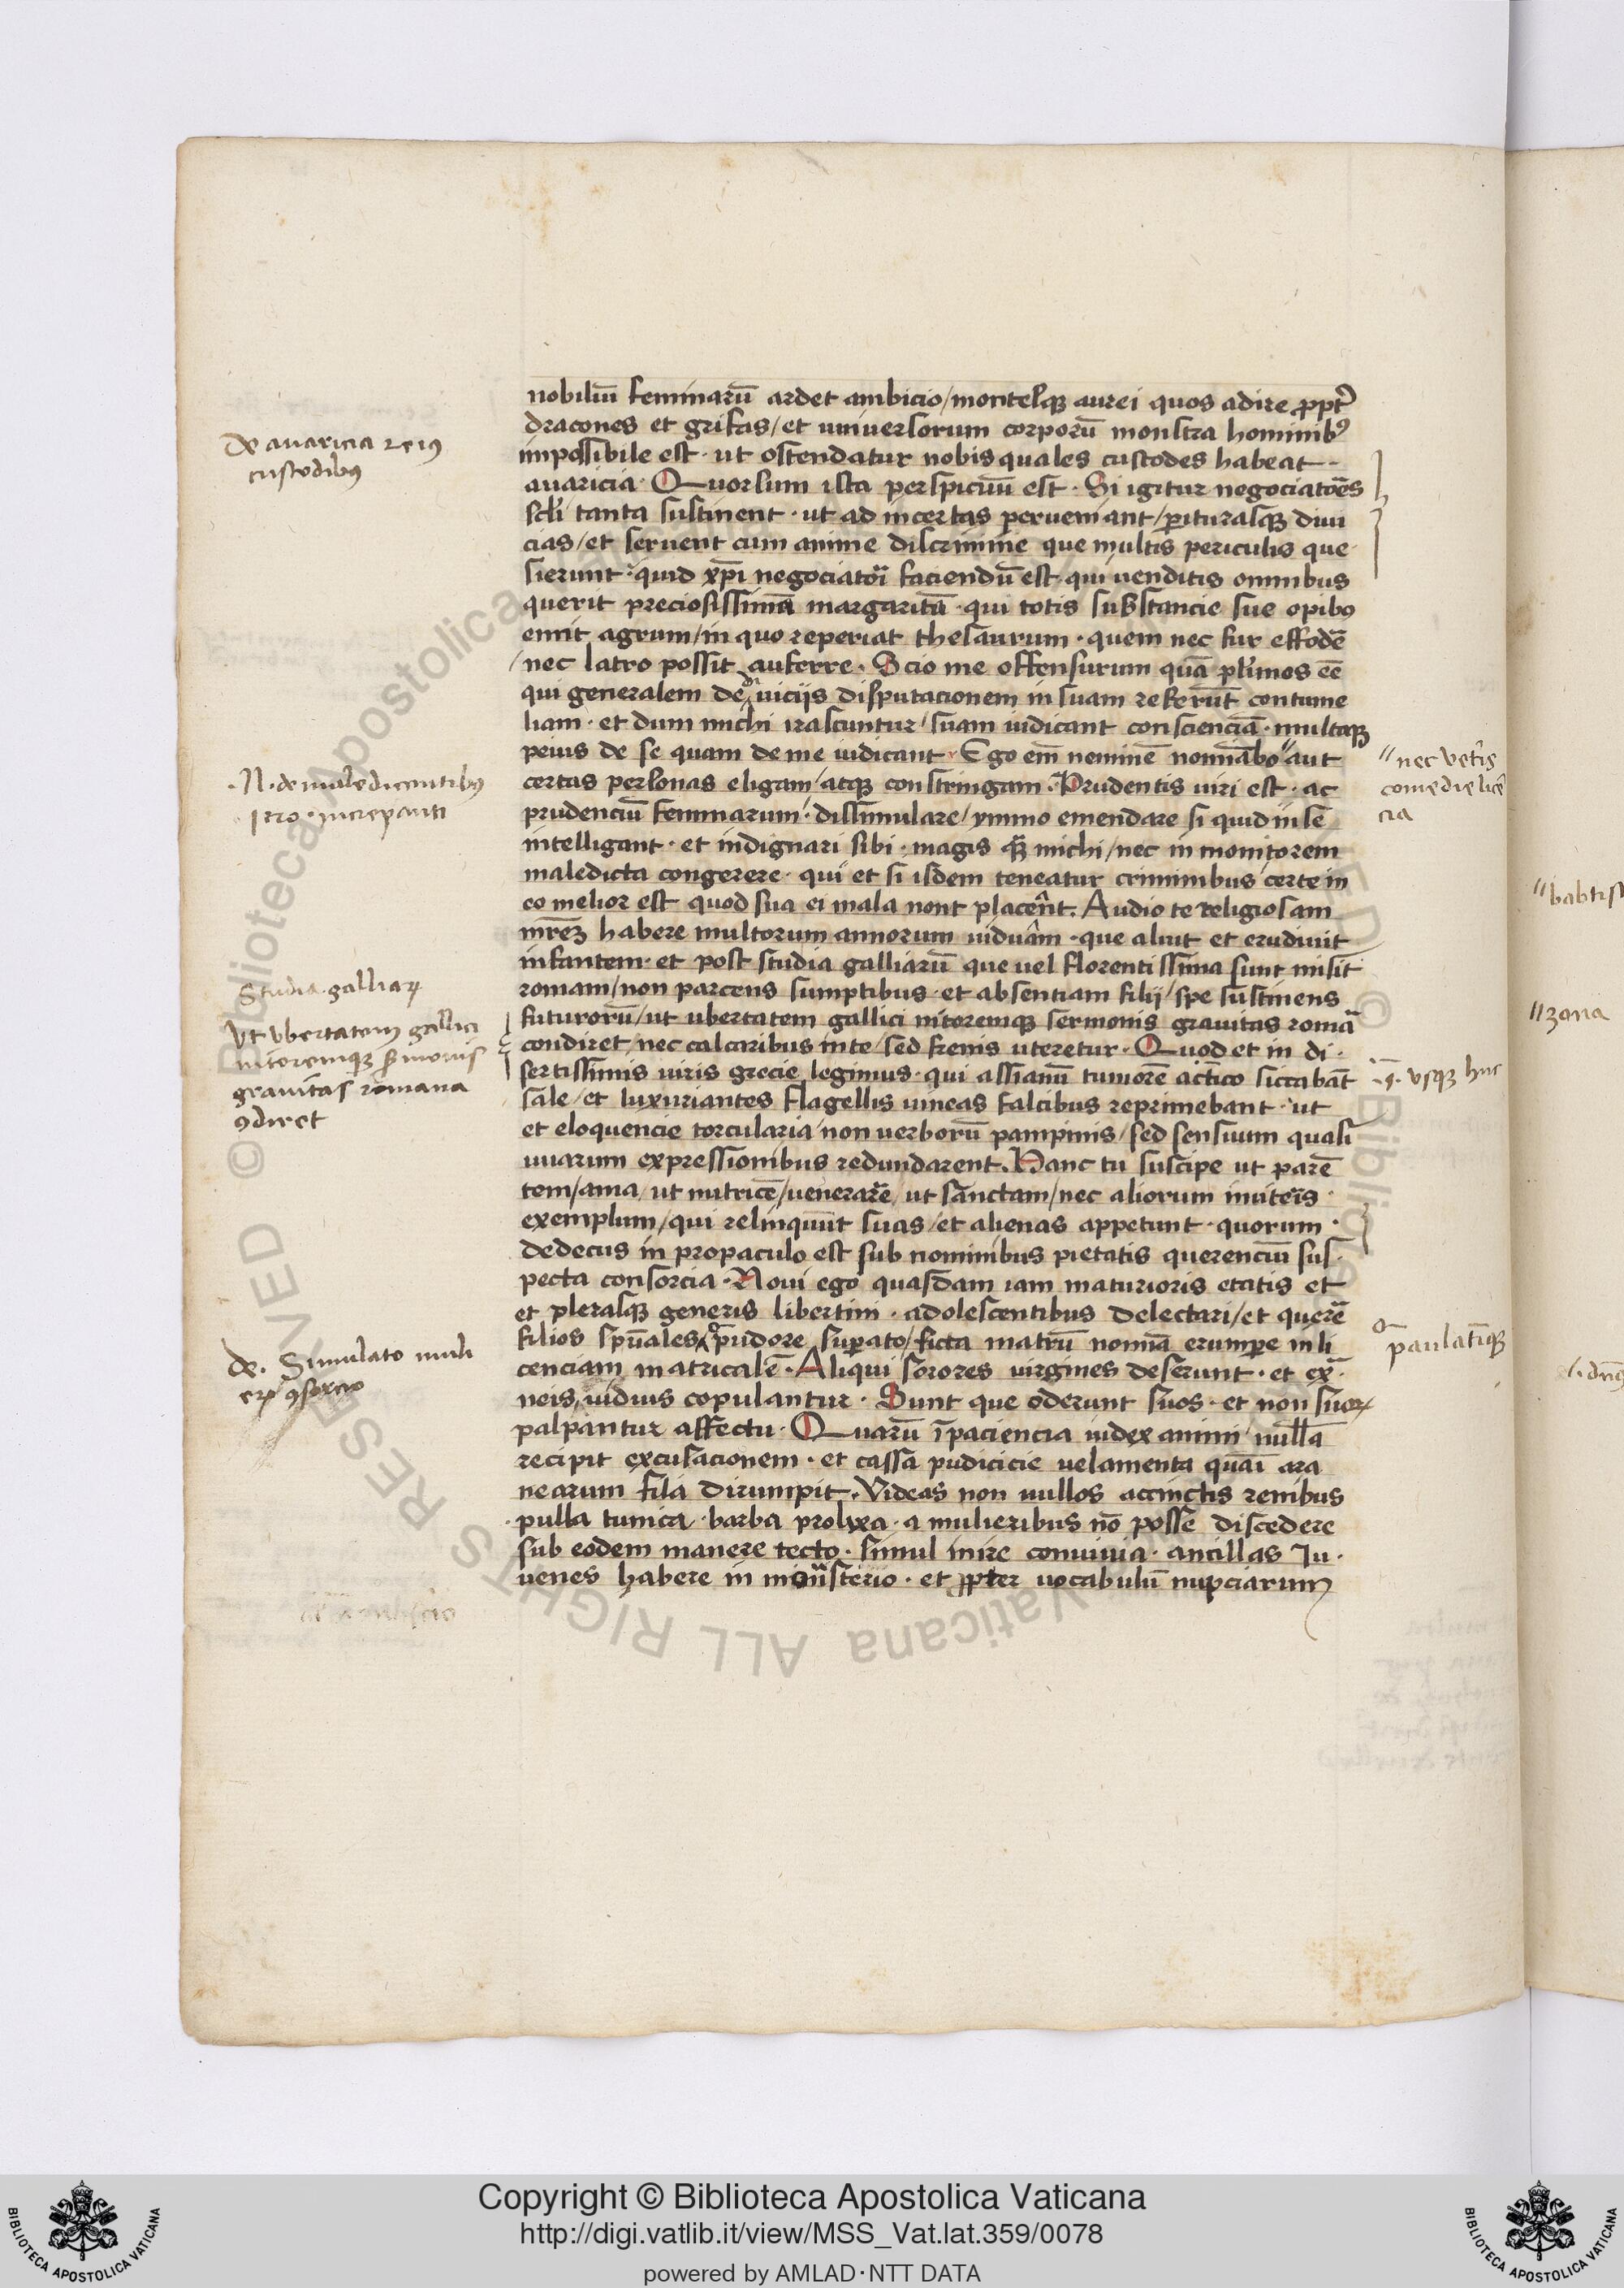 nobiliũ feminarũ ardet ambicio / montesqꝫ aurei quos adire ꝓpṭ̃
dracones et grifas / et uniuersorum corporũ monstra hominibꝰ
impossibile est · ut ostendatur nobis quales custodes habeat
auaricia · Quorsum ista perspicuũ est · Si igitur negociatoẽs
scl̃i tanta sustinent · ut ad incertas perueniant / ꝑiturasqꝫ diui
cias / et seruent cum anime discrimine que multis periculis que
sierunt · quid xp̃i negociatoĩ faciendũ est · qui uenditis omnibus
querit preciosissimã margaritã · qui totis substancie sue opibꝰ
emit agrum / in quo reperiat thesaurum · quem nec fur effodẽ
/ nec latro possit auferre · Scio me offensurum quã pl̃imos eẽ
qui generalem de uiciis disputacionem in suam referũt contume
liam · et dum michi irascuntur / suam iudicant conscienciã · multoqꝫ
peius de se quam de me iudicant · Ego em̃ neminẽ nominabo " aut
certas personas eligam / atqꝫ constringam · Prudentis uiri est · ac
prudenciũ feminarum · dissimulare / ymmo emendare si quid in se
intelligant · et indignari sibi · magis qꝫ̃ michi / nec in monitorem
maledicta congerere · qui et si isdem teneatur criminibus / certe in
eo melior est quod sua ei mala nont placent̃ . Audio te religiosam
mr̃eꝫ habere multorum annorum uiduam · que aluit et erudiuit
infantem · et post studia galliarũ que uel florentissima sunt misit
romam / non parcens sumptibus · et absentiam filij / spe sustinens
futurorũ / ut ubertatem gallici nitoremqꝫ sermonis grauitas romã
condiret / nec calcaribus in te / sed frenis uteretur · Quod et in di ·
sertissimis uiris grecie legimus · qui assianũ tumorẽ actico siccabãt
sale / et luxuriantes flagellis uineas falcibus reprimebant · ut
et eloquencie torcularia / non uerborũ pampinis / sed sensuum quasi
uuarum expressionibus redundarent . Hanc tu suscipe ut parẽ
tem / ama / ut nutricẽ / uenerarẽ / ut sanctam / nec aliorum inuiteris
exemplum / qui relinquũt suas / et alienas appetunt · quorum ·
dedecus in propaculo est sub nominibus pietatis querenciũ sus ·
pecta consorcia · Noui ego quasdam iam maturioris etatis et
et plerasqꝫ generis libertini · adolescentibus delectari / et querẽ
filios sp̃uales pudore suꝑato / ficta matrũ nomiã erumꝑe in li
cenciam matricalẽ · Aliqui sorores uirgines deserunt · et ex̃ ·
neis uiduis copulantur · Sunt que oderunt suos · et non suoꝝ
palpantur affectu · Quarũ ĩpaciencia iudex animi / nullã
recipit excusacionem · et cassa pudicicie uelamenta quãi ara
nearum fila dirumpit . Videas non nullos accinctis renibus
pulla tunica · barba prolixa · a mulieribus nõ posse discedere
sub eodem manere tecto · simul inire conuiuia · ancillas Iu ·
uenes habere in ministerio · et ꝓpter uocabulũ nupciarum
De auaricia et eiꝰ
custodibꝰ
· N · de maledicentibꝰ
iero · increpanti
Studia · galliaꝝ
Vt vbertatem gallici
nitoremqꝫ s̃monis
grauitas romana
ꝯdiret
De . Simulato muli
erũ ꝯsorcio
" nec vetĩs
comedie licẽ
cia
· q̃ · vsqꝫ huc
paulatĩqꝫ
" babtis
" zona
Copyright © Biblioteca Apostolica Vaticana
http://digi.vatlib.it/view/MSS_Vat.lat.359/0078
powered by AMLAD·NTT DATA
BIBLIOTECA APOSTOLICA VATICANA
BIBLIOTECA APOSTOLICA VATICANA